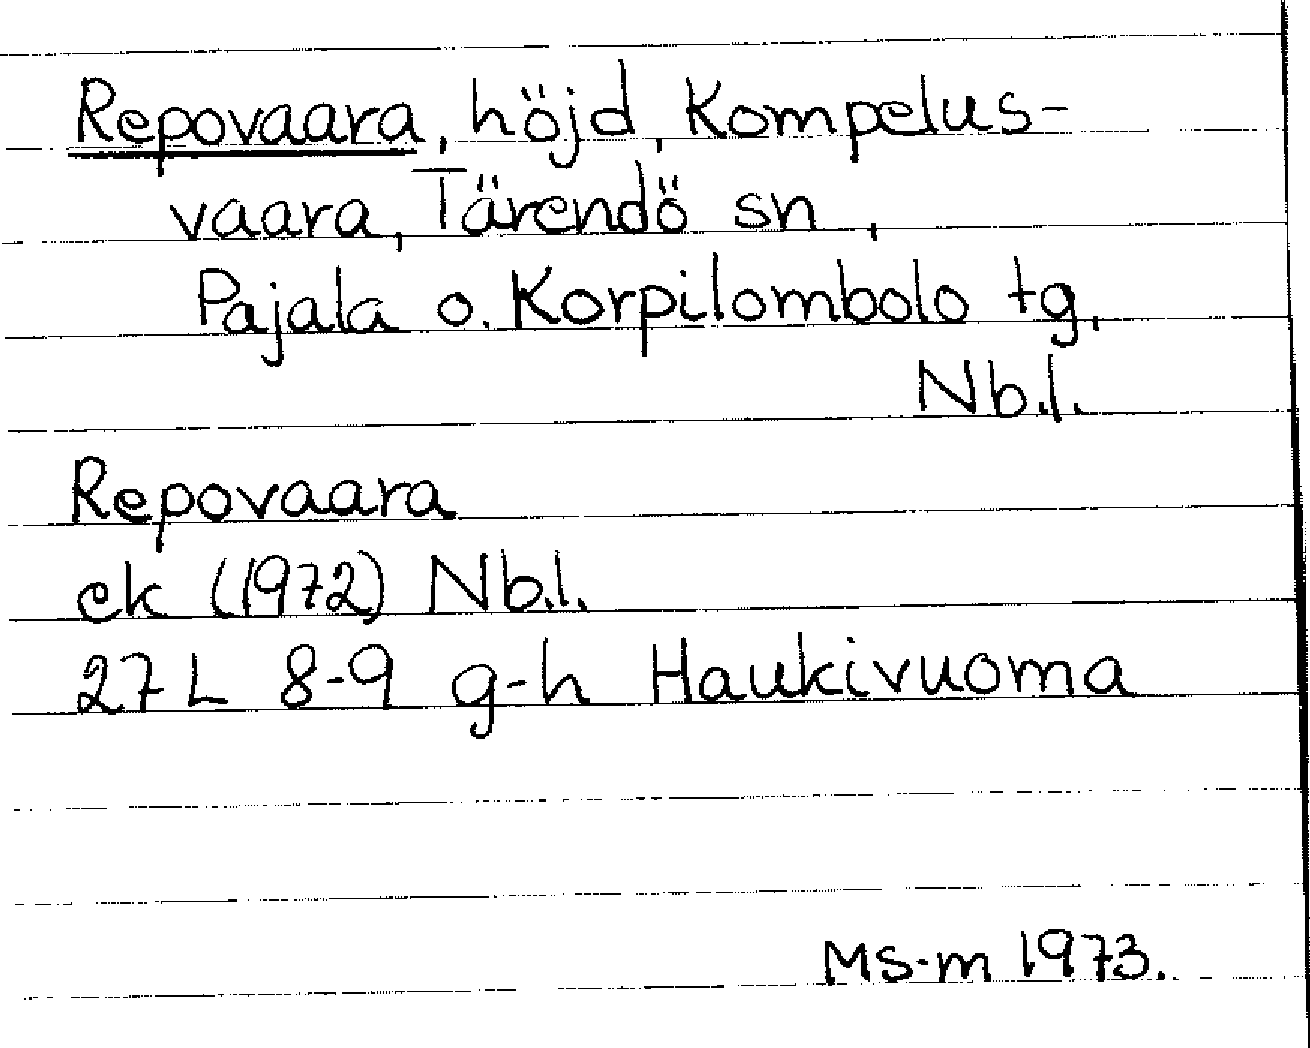 Repovaara, höjd, Kompelus-
vaara, Tärendö sn,
Pajala o. Korpilombolo tg,
Nb.l.
Repovaara
ek (1972) Nb.l.
27 L 8-9 g-h Haukivuoma
MS-m 1973.